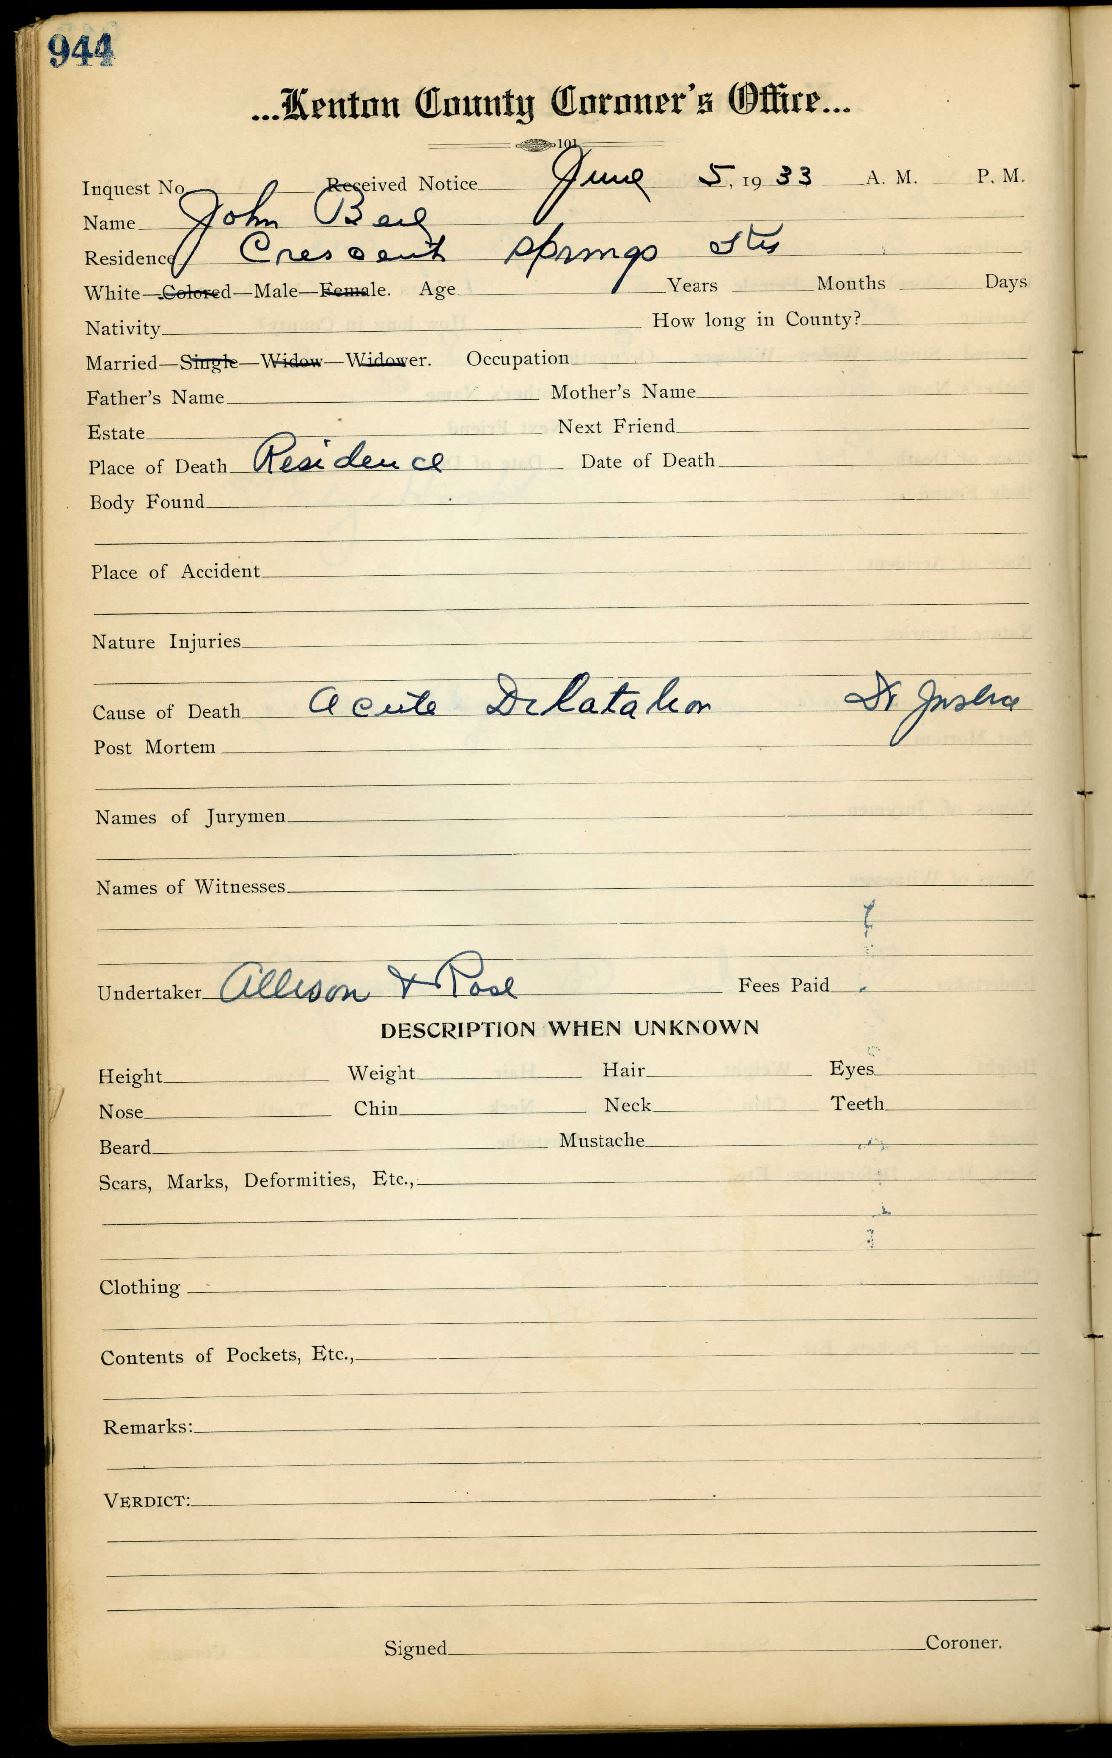 944
...Kenton County Coroner's Office...
101
Inquest No. Received Notice June 5, 1933 A. M. P. M.
Name John Beil
Residence Crescent Springs
White—Colored—Male—Female. Age Years Months Days
Nativity How long in County?
Married—Single—Widow—Widower. Occupation
Father's Name Mother's Name
Estate Next Friend
Place of Death Residence Date of Death
Body Found
Place of Accident
Nature Injuries
Cause of Death Acute Dilatation Dr
Post Mortem
Names of Jurymen
Names of Witnesses
Undertaker Allison & Rose Fees Paid
DESCRIPTION WHEN UNKNOWN
Height Weight Hair Eyes
Nose Chin Neck Teeth
Beard Mustache
Scars, Marks, Deformities, Etc.,
Clothing
Contents of Pockets, Etc.,
Remarks:
VERDICT:
Signed Coroner.